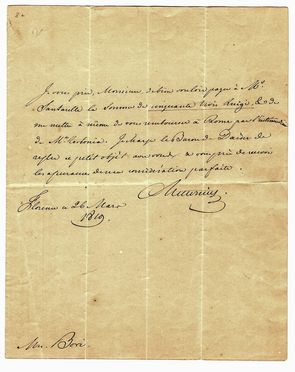 Je vous prie, Monsieur de bien vouloir payer à Mr.
la Somme de cinquante trois Luigi, & de
me mettre à même de vous rembourser à Rome par
de Mr. Je charge le Baron de
régler ce petit objet avec vous, & vous prie de recevoir
les assurances de ma considération parfaite.
Florence le 26 Mars
1819.
Mr. Boré